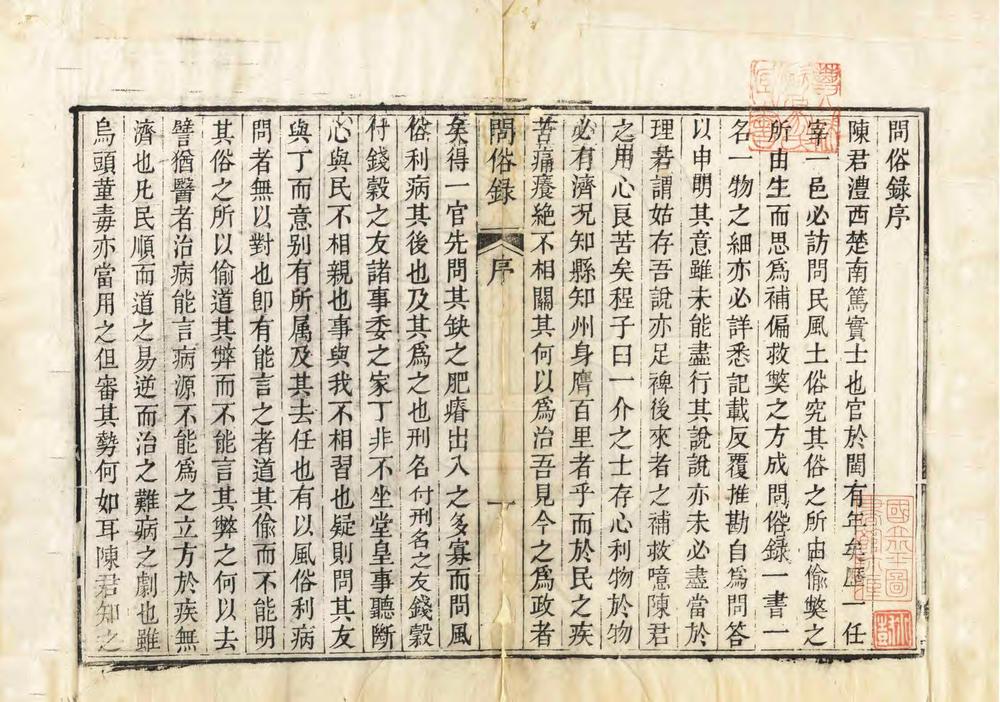 問俗録序
陳君澧西楚南篤實士也官於閩有年矣歷一任
宰一邑必訪問民風土俗究其俗之所由偷獘之
所由生而思爲補偏救獘之方成問俗録一書一
名一物之細亦必詳悉記載反覆推勘自爲問答
以申明其意雖未能盡行其說說亦未必盡當於
理若謂姑存吾說亦足裨後來者之補救噫陳君
之用心良苦矣程子曰一介之士存心利物於物
必有濟况知縣知州身膺百里者乎而於民之疾
苦痛癢絶不相關其何以爲治吾見今之爲政者
問俗録
序
一
矣得一官先問其缺之肥瘠出入之多寡而問風
俗利病其後也及其爲之也刑名付刑名之友錢穀
付錢穀之友諸事委之家丁非不坐堂皇事聽斷
心與民不相親也事與我不相習也疑則問其友
與丁而意别有所属及其去任也有以風俗利病
問者無以對也卽有能言之者道其偷而不能明
其俗之所以偷道其弊而不能言其弊之何以去
譬猶醫者治病能言病源不能爲之立方於疾無
濟也凡民順而道之易逆而治之難病之劇也雖
烏頭堇毒亦當用之但審其勢何如耳陳君知之